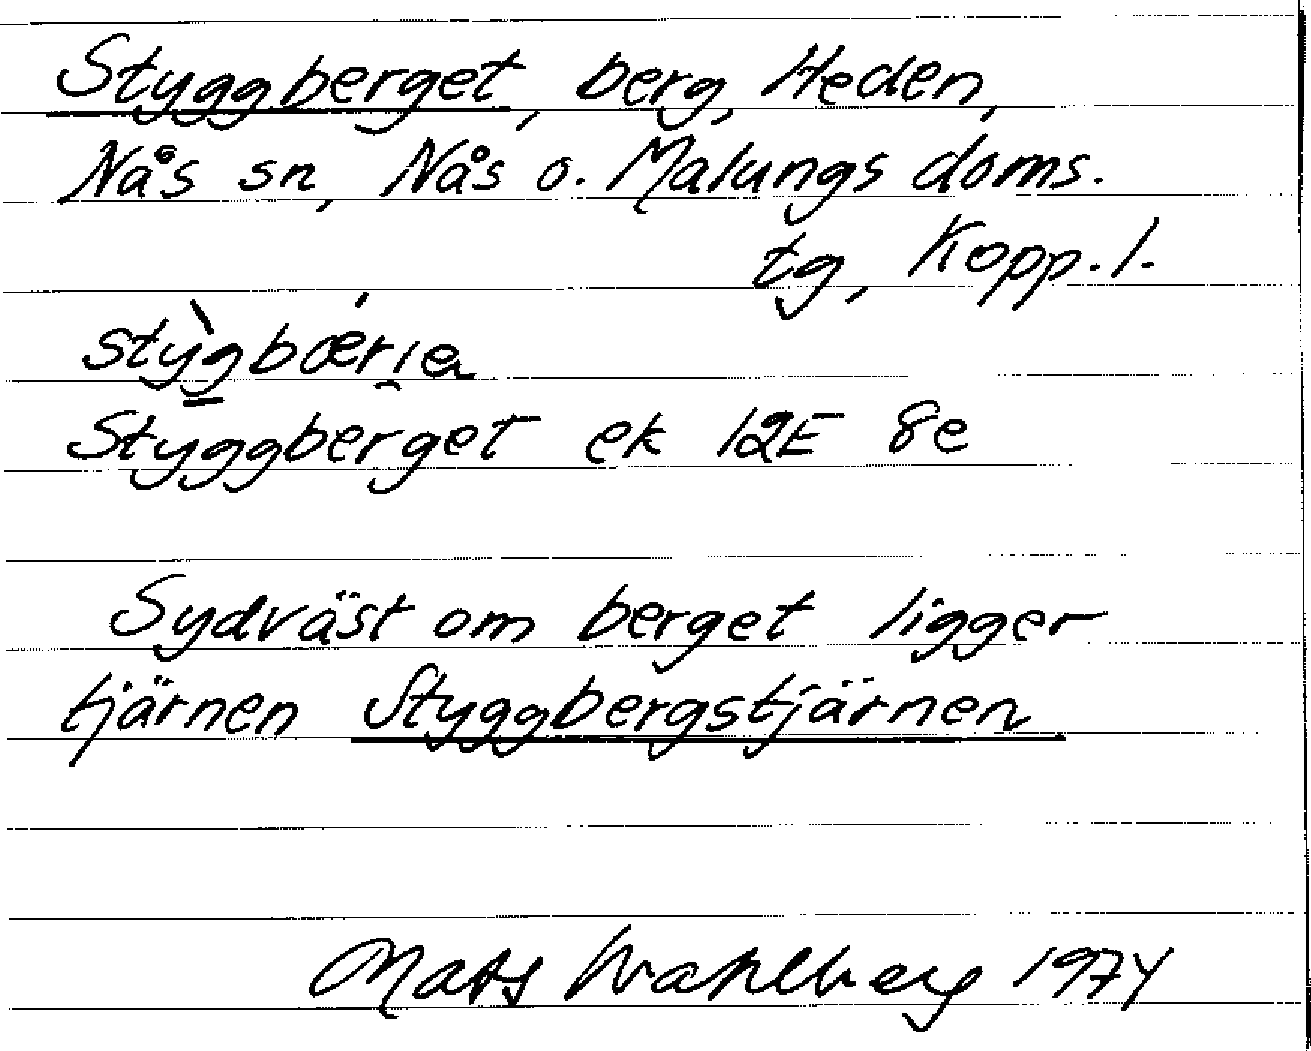 Styggberget, berg, Heden,
Nås sn, Nås o. Malungs doms.
tg, Kopp.l.
Styggberget ek 12E 8e
Sydväst om berget ligger
tjärnen Styggbergstjärnen
Mats Wahlberg 1974